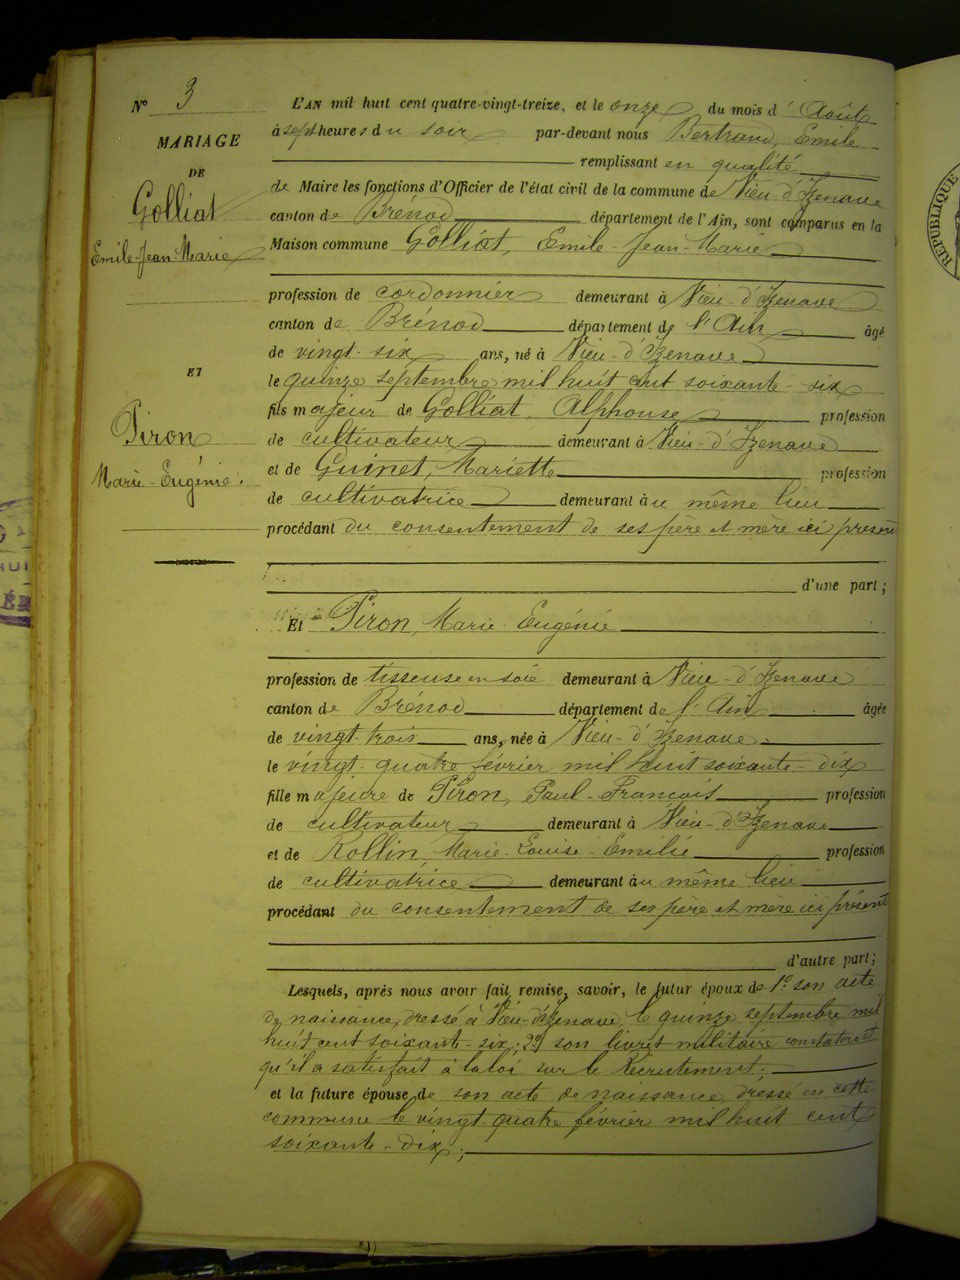 N° 3
MARIAGE
DE
Golliat
Emile-Jean-Marie
ET
Piron
Marie-Eugénie.
L'AN mil huit cent quatre-vingt-treize, et le onze du mois d'Août
à sept heures du soir par-devant nous Bertrand, Emile
remplissant en qualité
de Maire les fonctions d'Officier de l'état civil de la commune de Vieu-d'Izenave
canton de Brénod département de l'Ain, sont comparus en la
Maison commune Golliat, Emile-Jean-Marie
profession de cordonnier demeurant à Vieu-d'Izenave
canton de Brénod département de l'Ain âgé
de vingt-six ans, né à Vieu-d'Izenave
le quinze septembre mil huit cent soixante-six
fils majeur de Golliat, Alphonse profession
de cultivateur demeurant à Vieu-d'Izenave
et de Guinet, Mariette profession
de cultivatrice demeurant au même lieu
procédant du consentement de ses père et mère ici présent
d'une part;
Et Piron, Marie-Eugénie
profession de tisseuse en soie demeurant à Vieu-d'Izenave
canton de Brénod département de l'Ain âgée
de vingt-trois ans, née à Vieu-d'Izenave
le vingt-quatre février mil huit soixante-dix
fille majeure de Piron, Paul-François profession
de cultivateur demeurant à Vieu-d'Izenave
et de Rollin Marie-Louise-Emilie profession
de cultivatrice demeurant au même lieu
procédant du consentement de ses père et mère ici présent
d'autre part;
Lesquels, après nous avoir fait remise, savoir, le futur époux de 1° son acte
de naissance, dressé à Vieu-d'Izenave, le quinze septembre mil
huit cent soixante-six; 2° son livret militaire constatant
qu'il a satisfait à la loi sur le Recrutement;
et la future épouse de son acte de naissance, dressé en cette
commune le vingt-quatre février mil huit cent
soixante-dix;
RÉPUBLIQUE